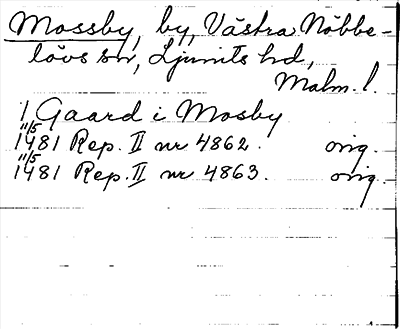 Mossby, by, Västra Nöbbe-
lövs sn, Ljunits hd,
Malm. l.
1 Gaard i Mosby
11/5
1481 Rep. II nr 4862. orig.
11/5
1481 Rep. II nr 4863. orig.